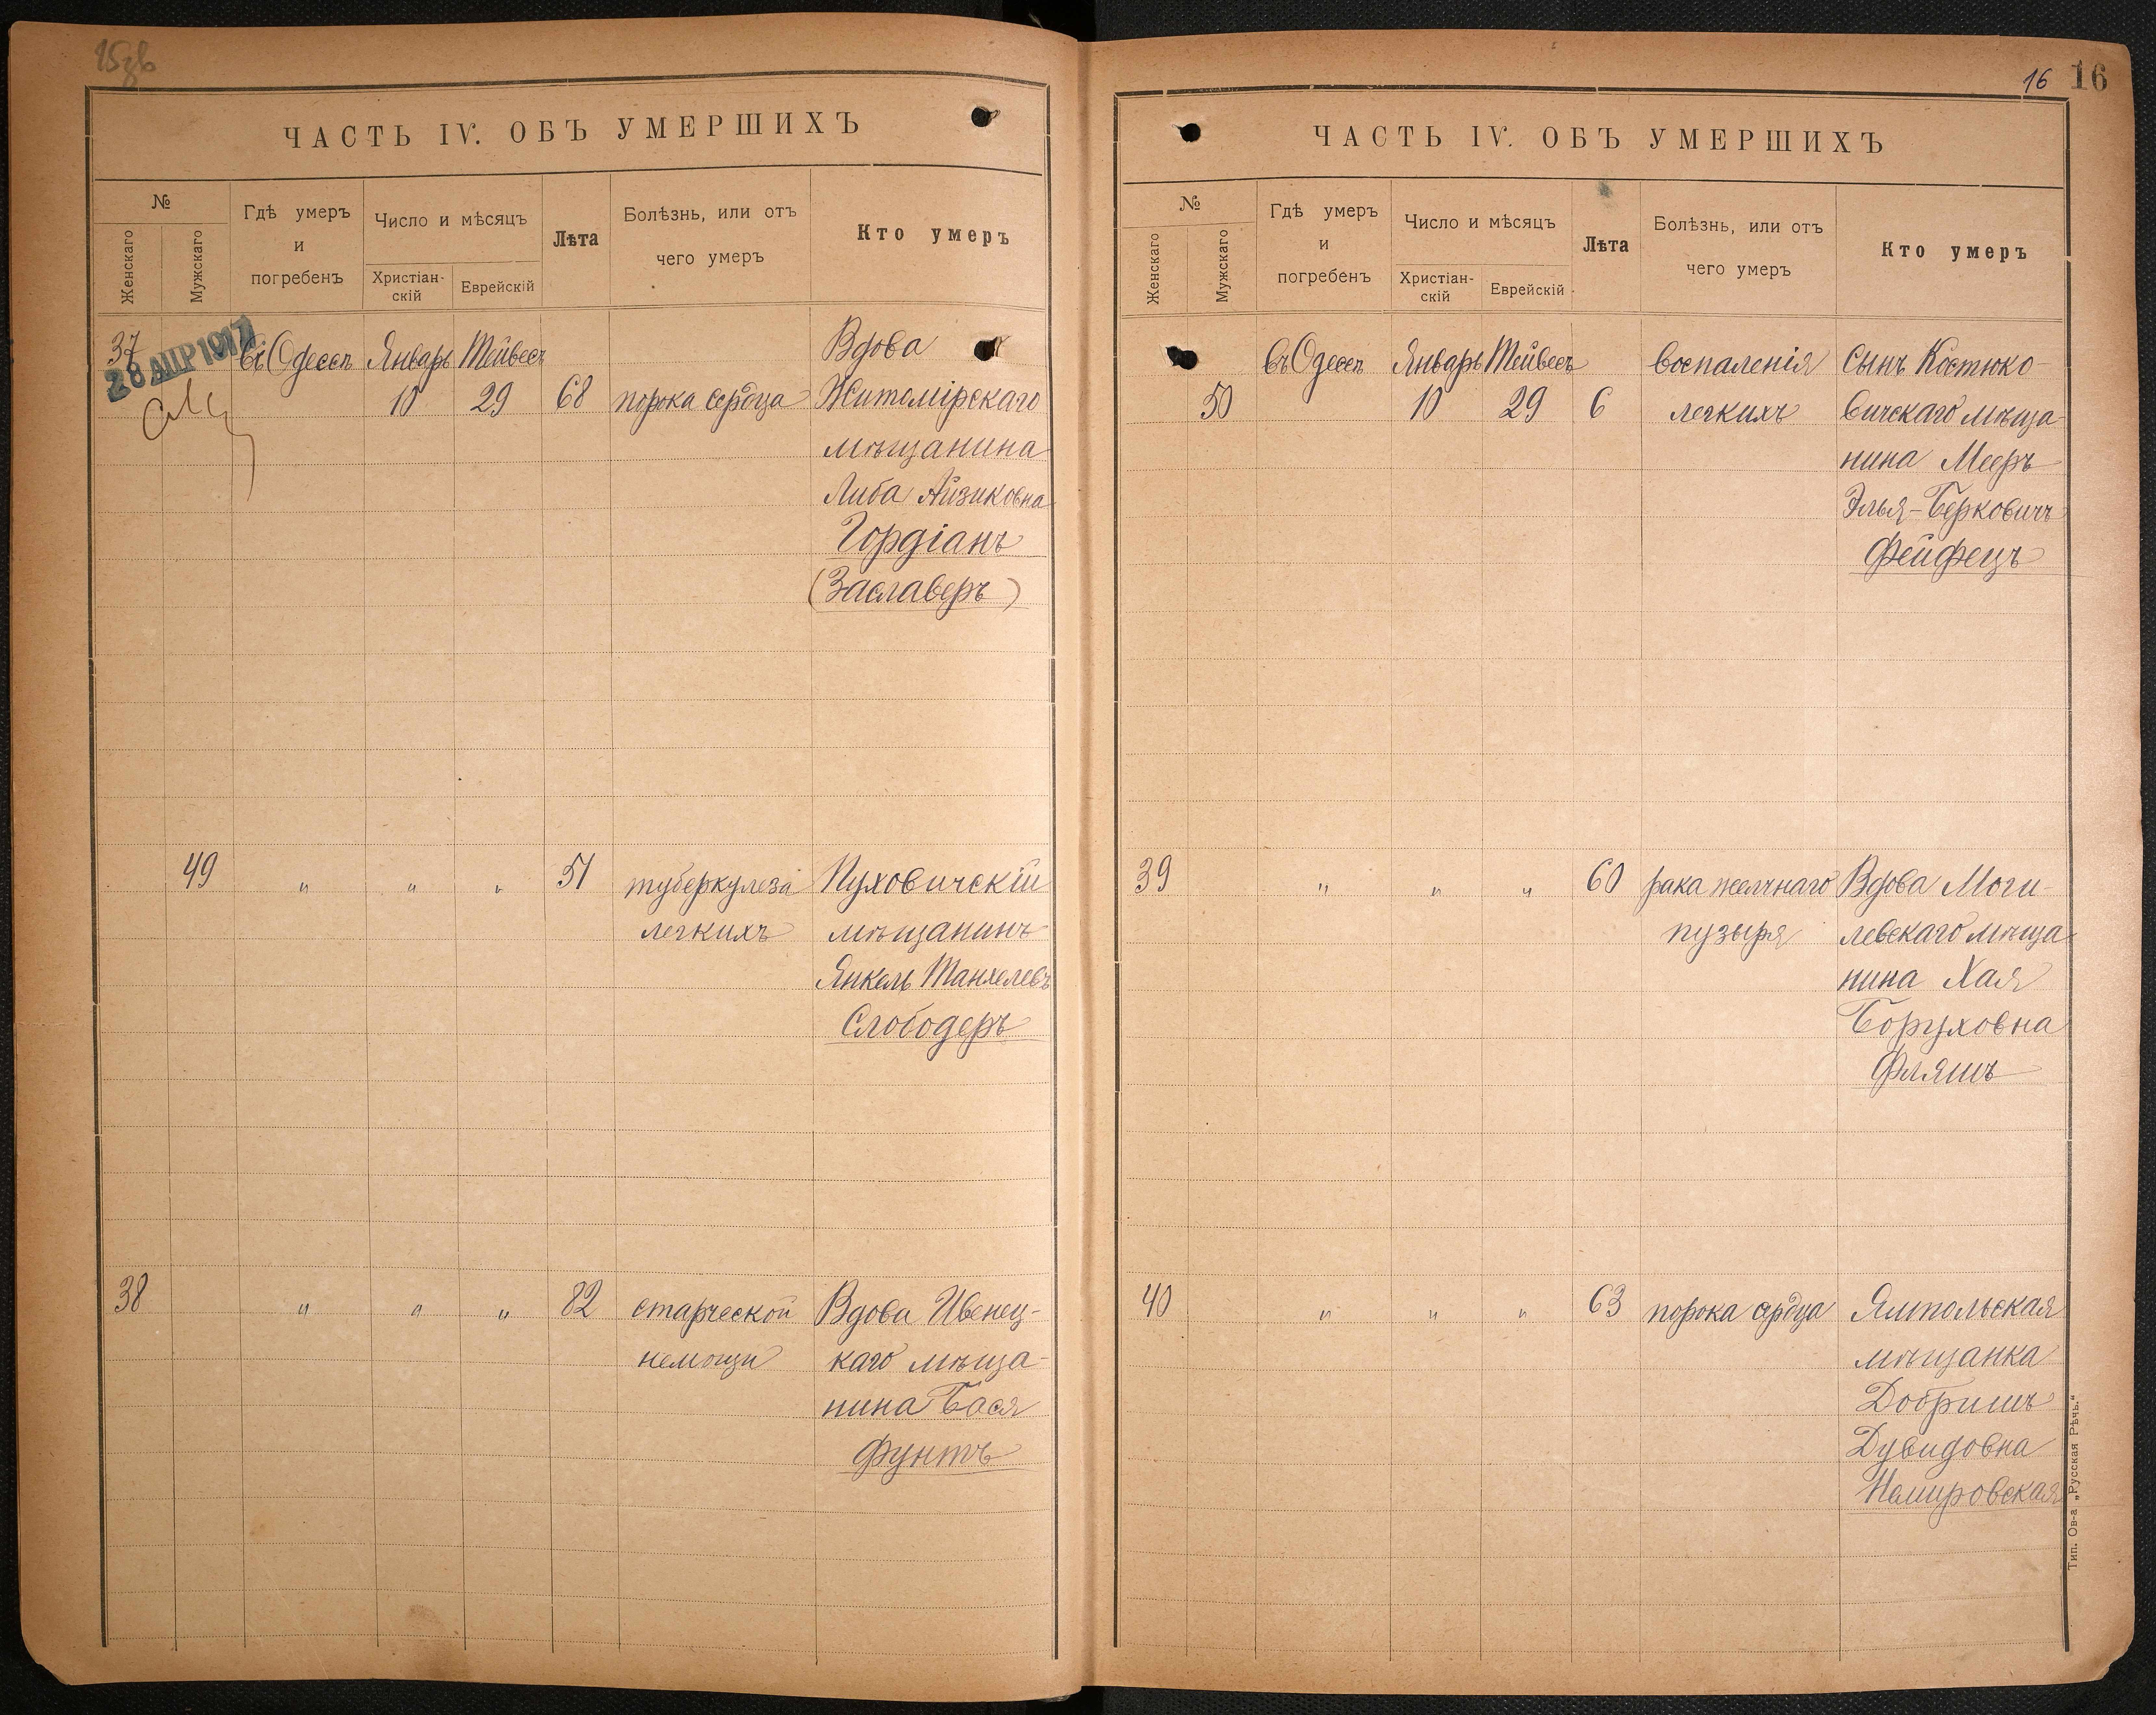 ЧАСТЬ IV. ОБЪ УМЕРШИХЪ
№
Женскаго
Мужскаго
Гдѣ умеръ
и
погребенъ
Число и мѣсяцъ
Христіан-
скій
Еврейскій
Лѣта
Болѣзнь, или отъ
чего умеръ
Кто умеръ
37
28 АПР 1917
въ Одессѣ Январь Тейвесъ Вдова
10 29 68 порока сердца Житомірскаго
мѣщанина
Либа Айзиковна
Гордіанъ
(Заславеръ)
49 " " " 51 туберкулеза Пуховичскій
легкихъ мѣщанинъ
Янкель Танхелевъ
Слободеръ
38 " " " 82 старческой Вдова Ивенец-
немощи каго мѣща-
нина Бася
Фунтъ
16 16
ЧАСТЬ IV. ОБЪ УМЕРШИХЪ
№
Женскаго
Мужскаго
Гдѣ умеръ
и
погребенъ
Число и мѣсяцъ
Христіан-
скій
Еврейскій
Лѣта
Болѣзнь, или отъ
чего умеръ
Кто умеръ
въ Одессѣ Январь Тейвесъ воспаленія Сынъ Костюко-
50 10 29 6 легкихъ вичскаго мѣща-
нина Мееръ
Элья-Берковичъ
Фейфецъ
39 " " " 60 рака желчнаго Вдова Моги-
пузыря левскаго мѣща-
нина Хая
Боруховна
Фляшъ
40 " " " 63 порока сердца Ямпольская
мѣщанка
Добришъ
Дувидовна
Немировская
Тип. Ов-а „Русская Рѣчь.“